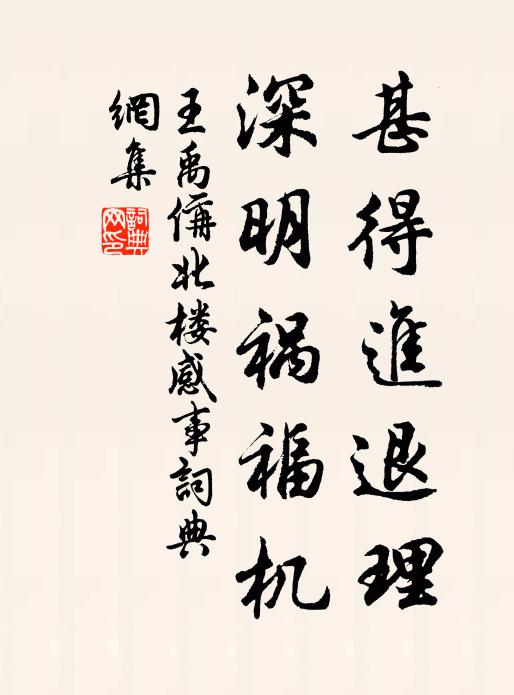 甚得進退理
深明祸福机
王禹偁北楼感事詞典
網集
詞典
网印